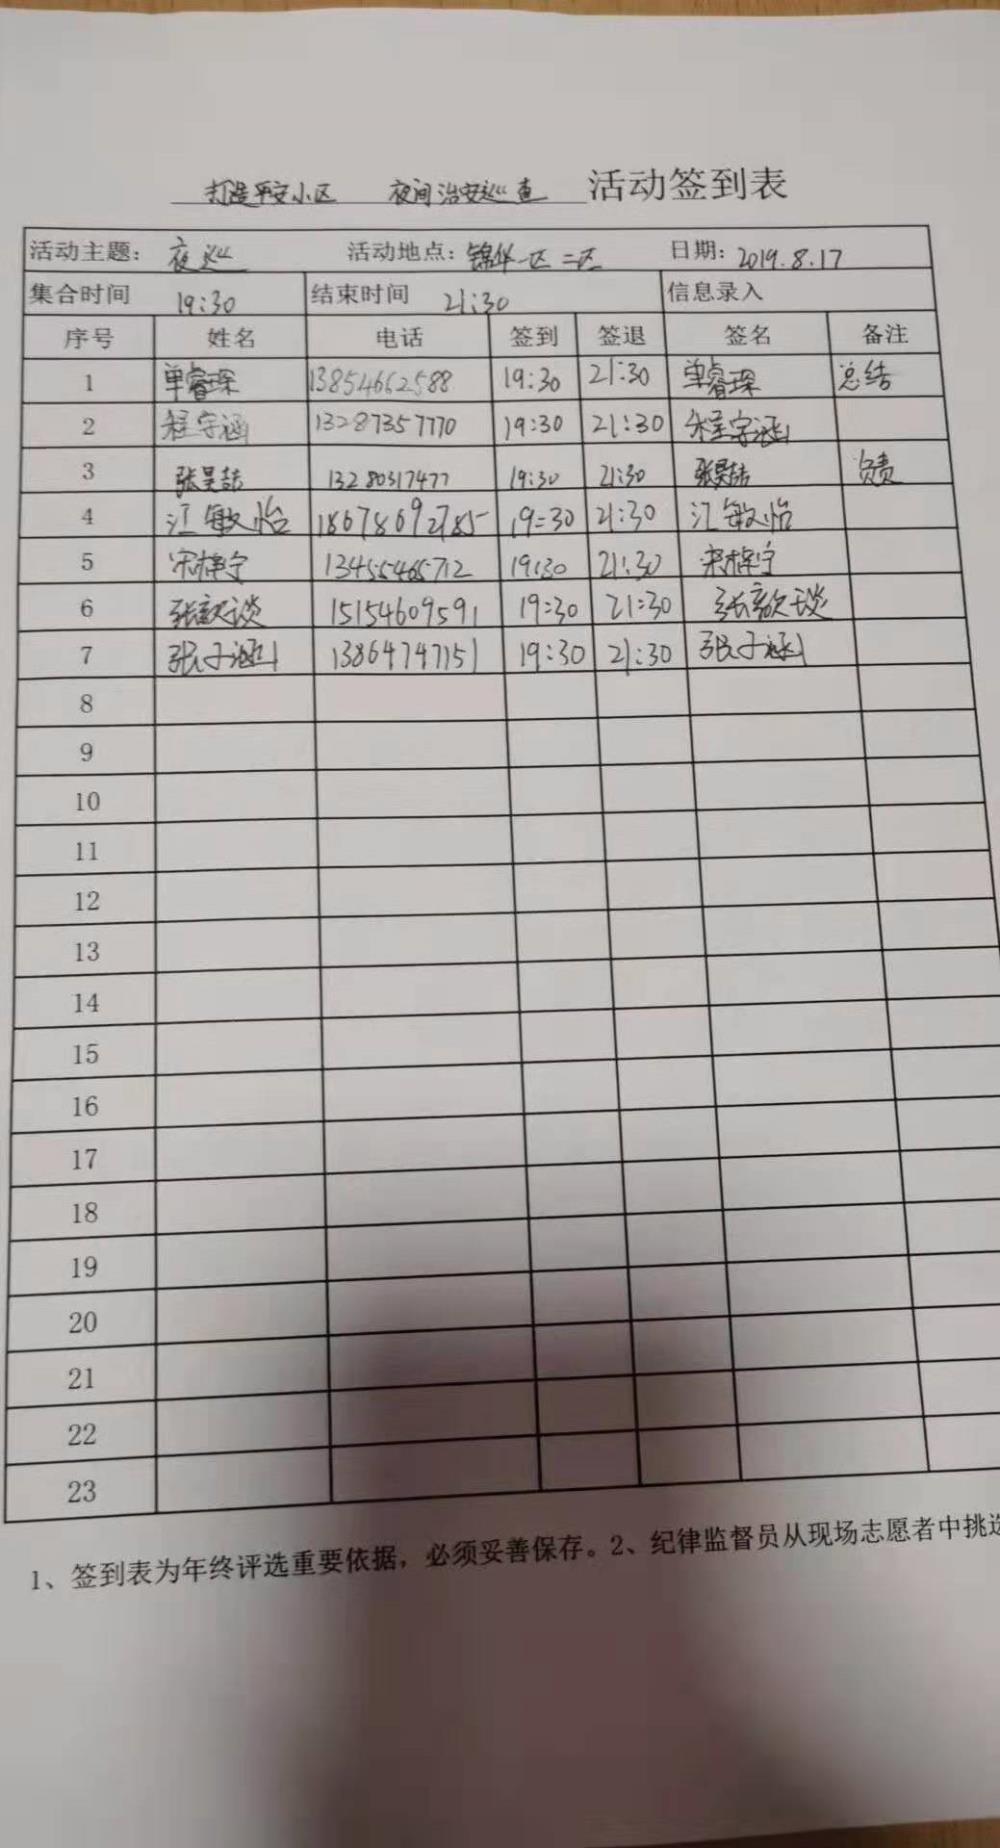 打造平安小区 夜间治安巡查 活动签到表
活动主题: 夜巡 活动地点: 锦华一区 二区 日期: 2019.8.17
集合时间 19:30 结束时间 21:30 信息录入
序号 姓名 电话 签到 签退 签名 备注
1 单睿琛 13854662588 19:30 21:30 单睿琛 总结
2 程宇涵 13287357770 19:30 21:30 程宇涵
3 张昊喆 13280317477 19:30 21:30 张昊喆 负责
4 江敏怡 18678692785 19:30 21:30 江敏怡
5 宋梓宁 13455465712 19:30 21:30 宋梓宁
6 张歆谈 15154609591 19:30 21:30
7 张子涵 13864747151 19:30 21:30 张子涵
8
9
10
11
12
13
14
15
16
17
18
19
20
21
22
23
1、签到表为年终评选重要依据，必须妥善保存。2、纪律监督员从现场志愿者中挑选